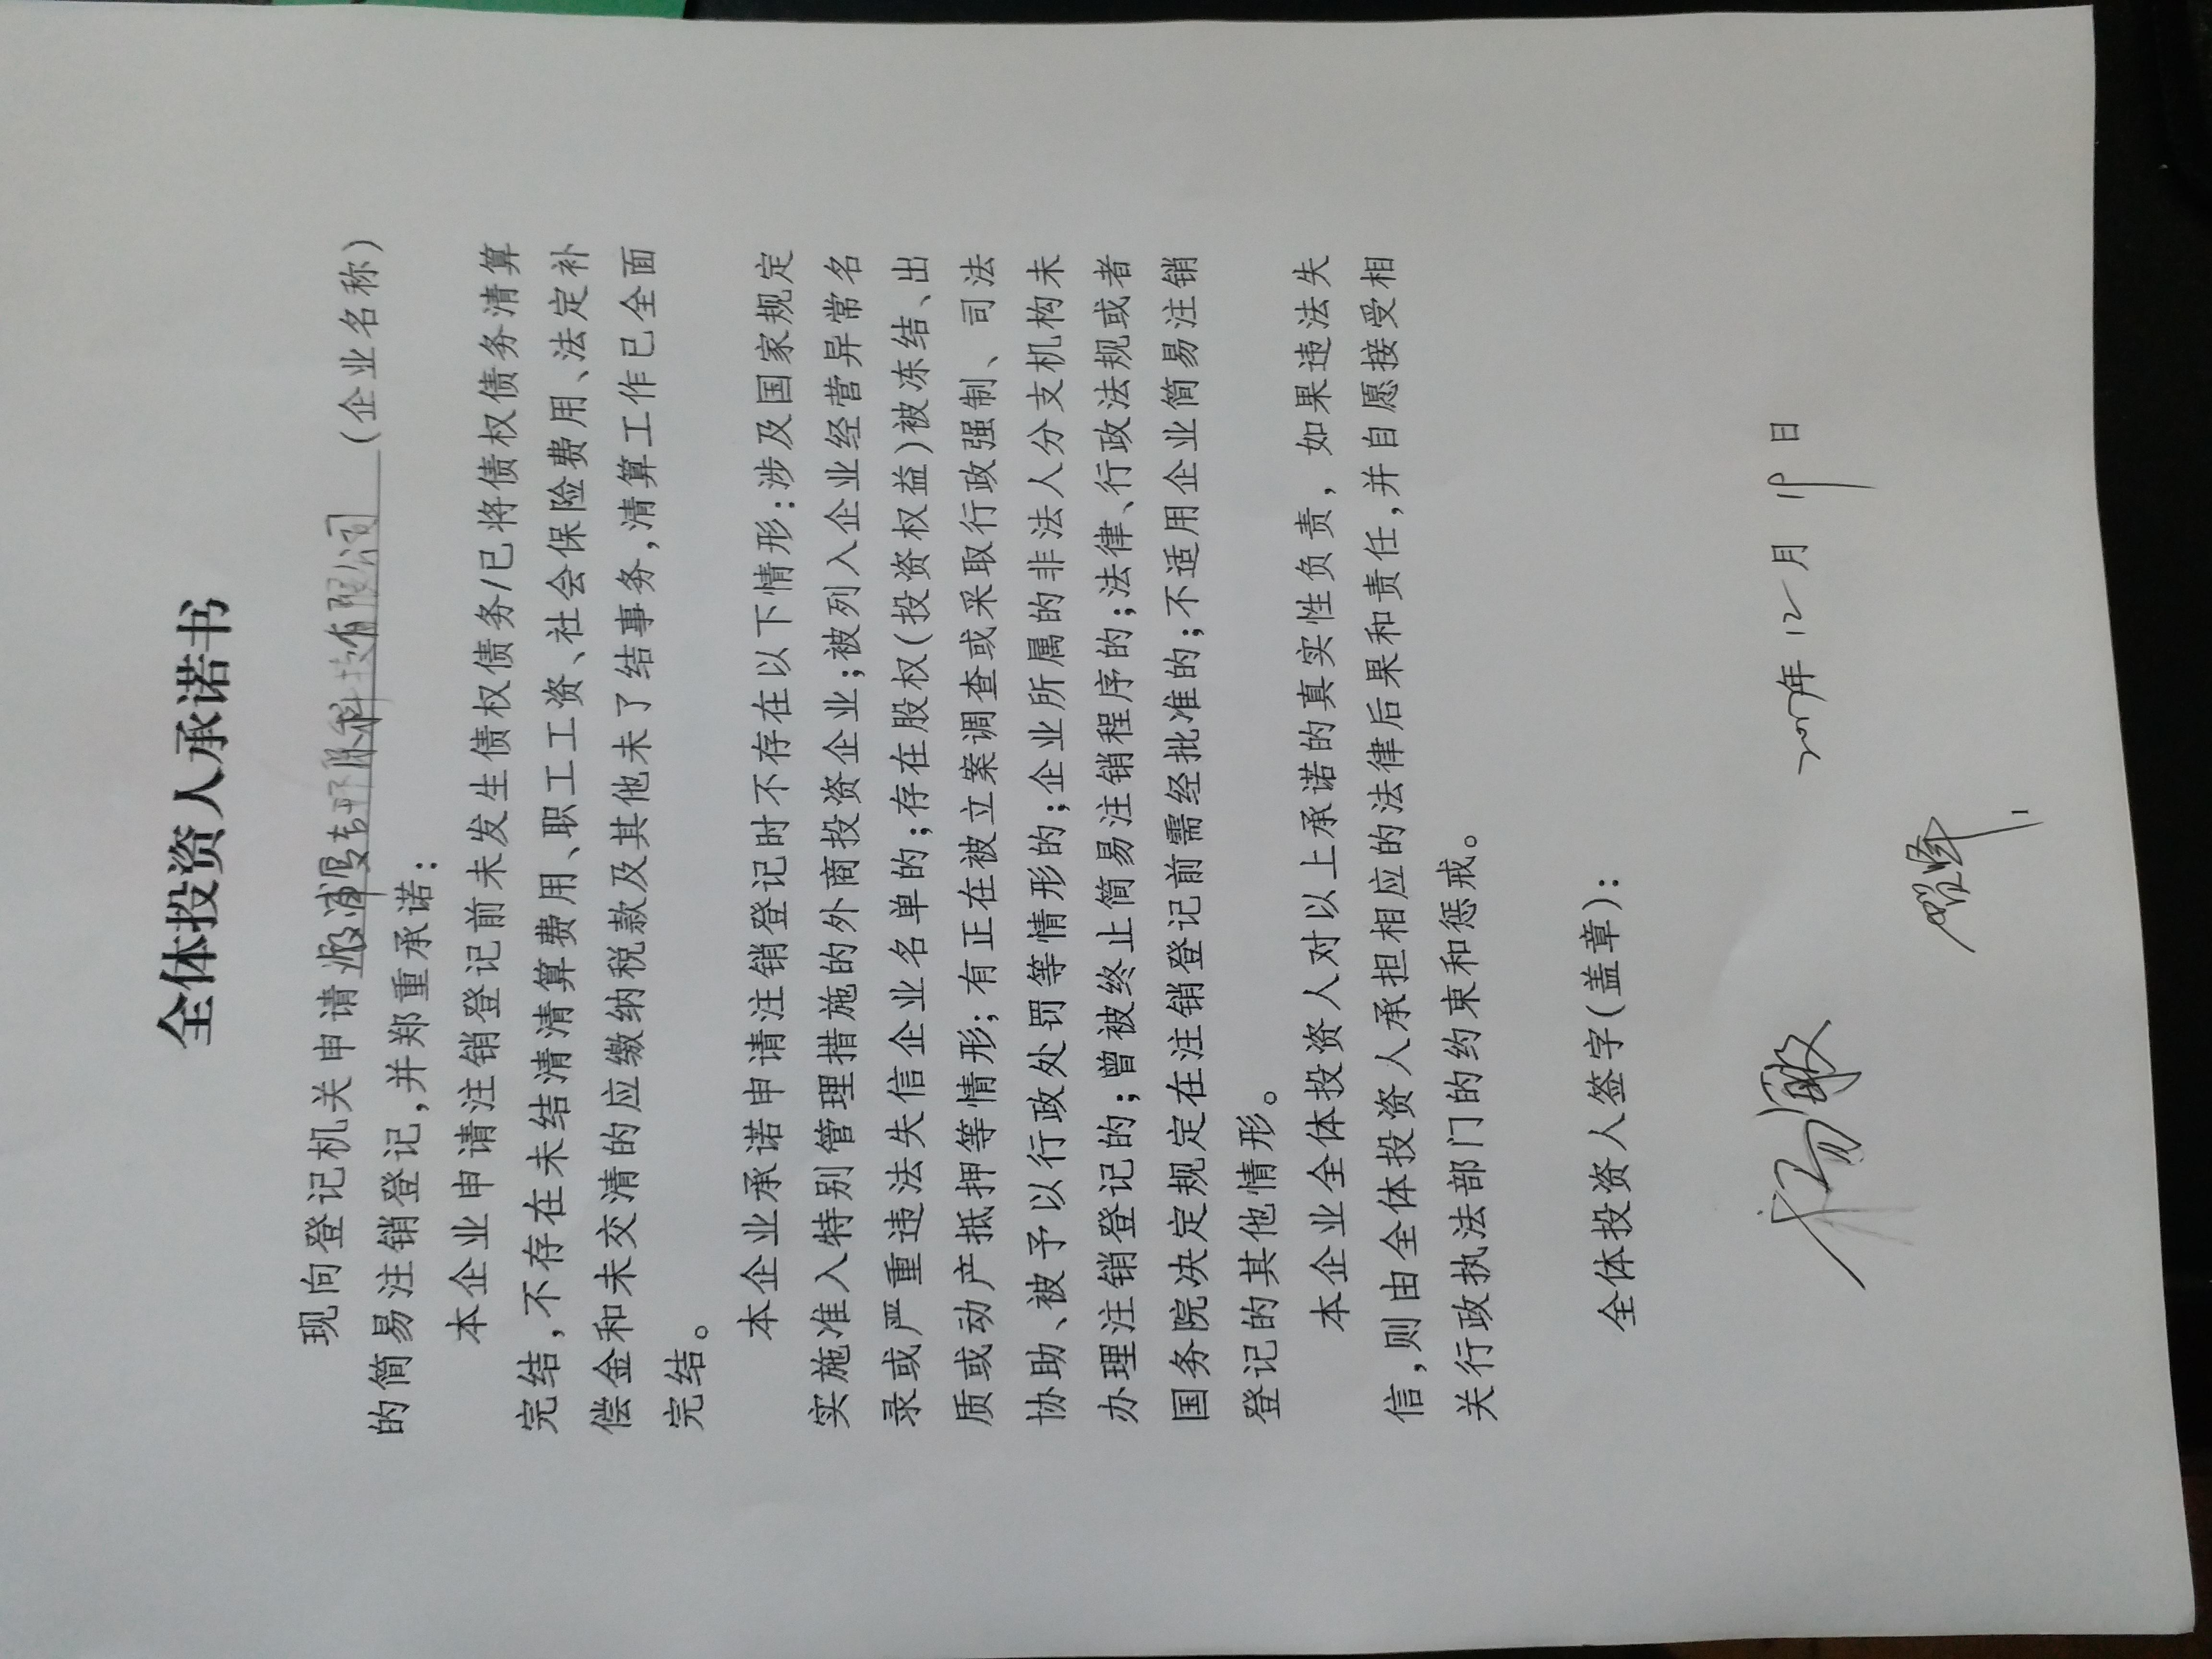 全体投资人承诺书
现向登记机关申请 科技有限公司 (企业名称)
的简易注销登记,并郑重承诺:
本企业申请注销登记前未发生债权债务/已将债权债务清算
完结,不存在未结清清算费用、职工工资、社会保险费用、法定补
偿金和未交清的应缴纳税款及其他未了结事务,清算工作已全面
完结。
本企业承诺申请注销登记时不存在以下情形:涉及国家规定
实施准入特别管理措施的外商投资企业;被列入企业经营异常名
录或严重违法失信企业名单的;存在股权(投资权益)被冻结、出
质或动产抵押等情形;有正在被立案调查或采取行政强制、司法
协助、被予以行政处罚等情形的;企业所属的非法人分支机构未
办理注销登记的;曾被终止简易注销程序的;法律、行政法规或者
国务院决定规定在注销登记前需经批准的;不适用企业简易注销
登记的其他情形。
本企业全体投资人对以上承诺的真实性负责，如果违法失
信,则由全体投资人承担相应的法律后果和责任,并自愿接受相
关行政执法部门的约束和惩戒。
全体投资人签字(盖章):
年12月19日